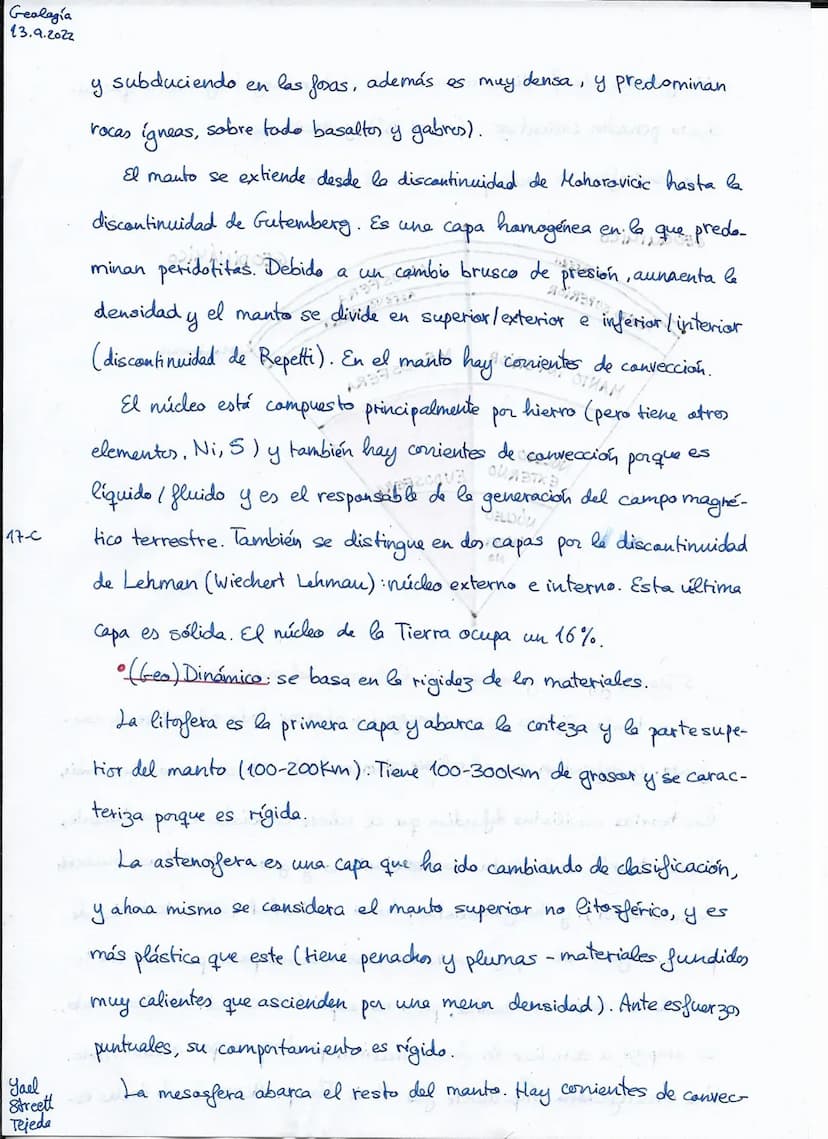 Geología
13.9.2022
y subduciendo en las fosas, además es muy densa, y predominan
rocas ígneas, sobre todo basaltos y gabros).
El manto se extiende desde la discontinuidad de Mohorovicic hasta la
discontinuidad de Gutemberg. Es una capa homogénea en la que predo-
minan peridotitas. Debido a un cambio brusco de presión, aumenta la
densidad y el manto se divide en superior/exterior e inferior/interior
(discontinuidad de Repetti). En el manto hay corrientes de convección.
El núcleo está compuesto principalmente por hierro (pero tiene otros
elementos, Ni, S) y también hay corrientes de convección porque es
líquido/fluido y es el responsable de la generación del campo magné-
17-C
tico terrestre. También se distingue en dos capas por la discontinuidad
de Lehman (Wiechert Lehman): núcleo externo e interno. Esta última
capa es sólida. El núcleo de la Tierra ocupa un 16%.
•(Geo)Dinámico: se basa en la rigidez de los materiales.
La litosfera es la primera capa y abarca la corteza y la parte supe-
rior del manto (100-200Km). Tiene 100-300km de grosor y se carac-
teriza porque es rígida.
La astenosfera es una capa que ha ido cambiando de clasificación,
y ahora mismo se considera el manto superior no litosférico, y es
más plástica que este (tiene penachos y plumas - materiales fundidos
muy calientes que ascienden por una menor densidad). Ante esfuerzos
puntuales, su comportamiento es rígido.
La mesosfera abarca el resto del manto. Hay corrientes de convec-
Yael
Streett
Tejeda